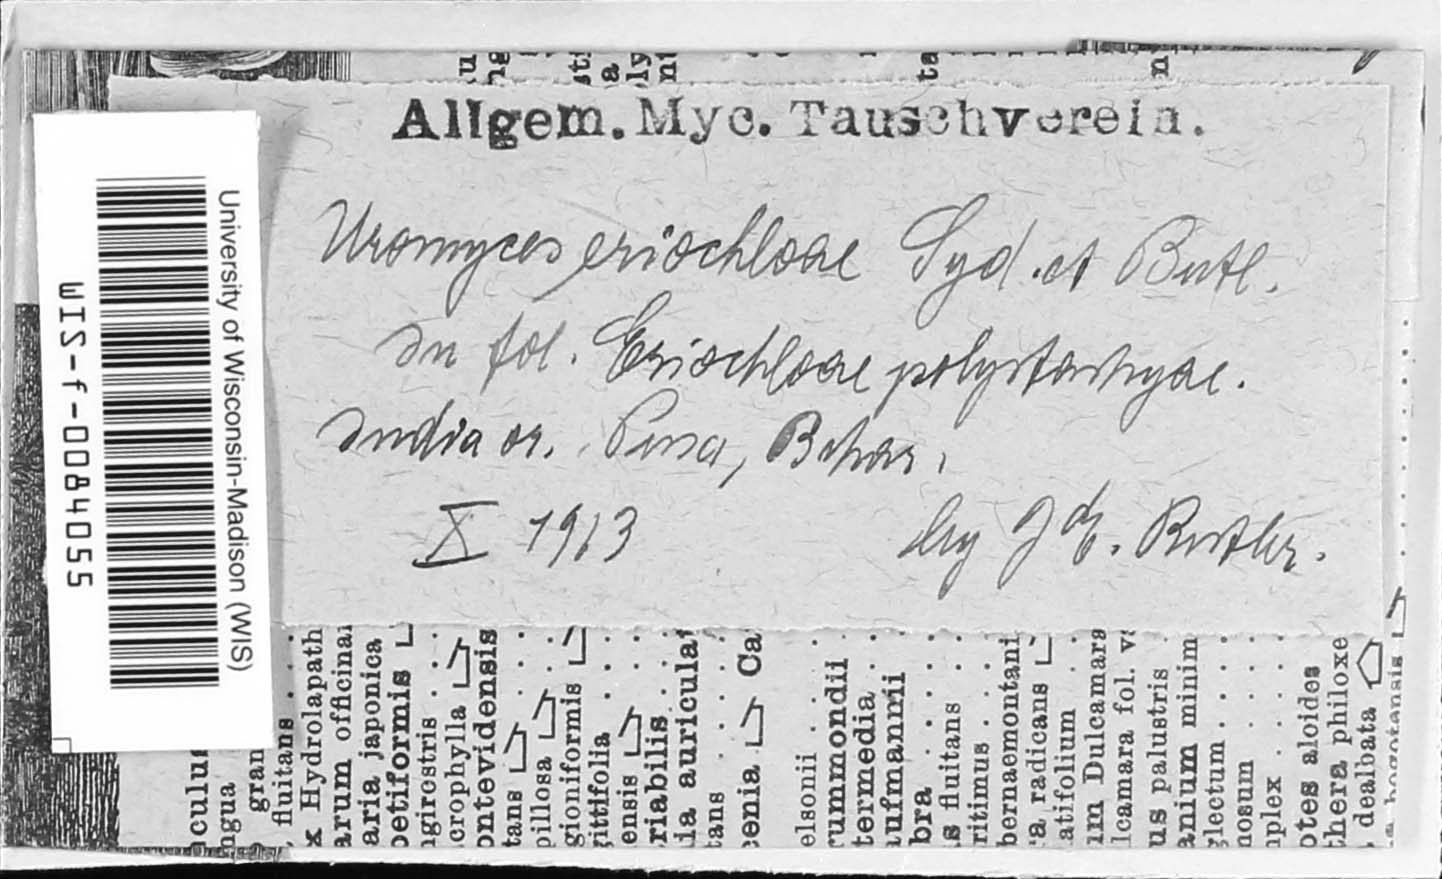 Allgem. Myc. Tauschverein.
Uromyces eriochloae Syd. et Butl.
In fol. Eriochloae polystachyae.
India or. Pusa, Behar.
X 1913
leg. Butler.
University of Wisconsin-Madison (WIS)
WIS-f-0084055
gran
fluitans . . .
x Hydrolapath
arum officinal
aria japonica
petiformis
ngirostris . . .
crophylla
ontevidensis
tans
pillosa
gioniformis
gittifolia
ensis
riabilis . . .
ia auriculat
tans . . . .
cenia Ca
elsonii . . .
rummondii
termedia . .
aufmannii
bra . . . .
s fluitans . .
ritimus . . .
bernaemontani
a radicans
atifolium . .
um Dulcamara
lcamara fol. v
us palustris .
anium minim
glectum . . .
nosum . . .
nplex . . . .
otes aloides
thera philoxe
dealbata
bogotensis